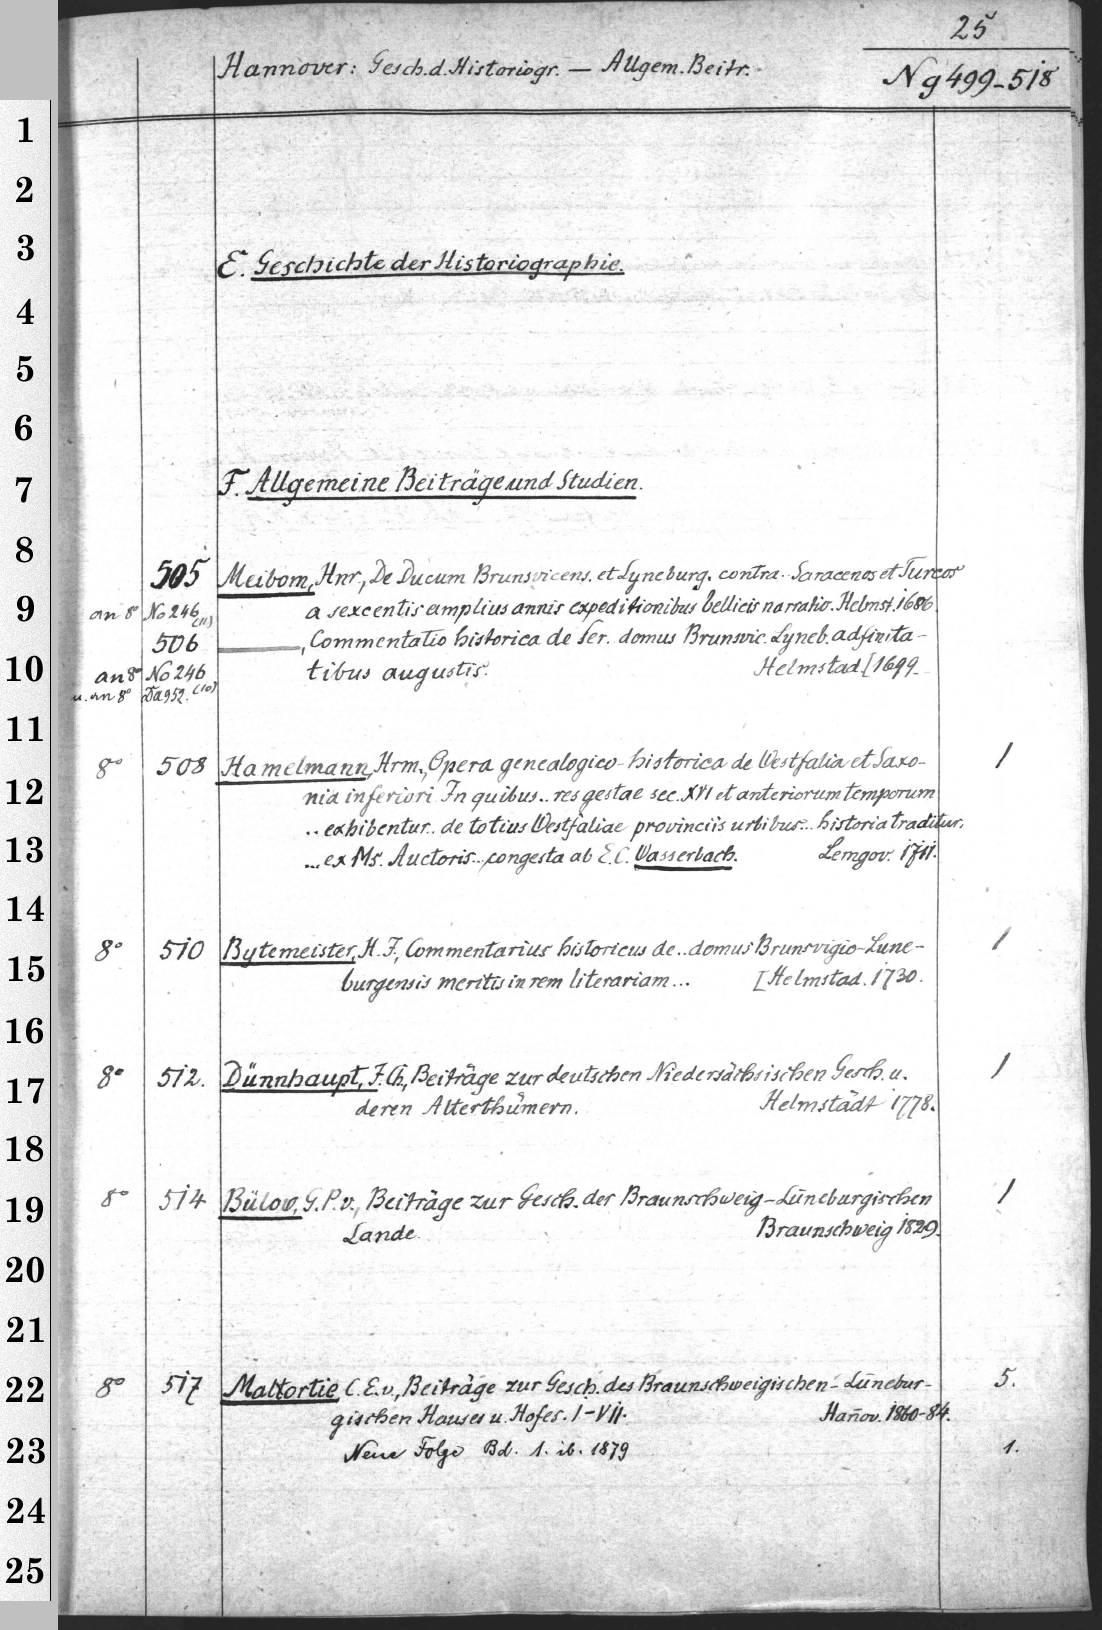 25
Hannover: Gesch. d. Historiogr. — Allgem. Beitr.
Ng 499-518
1
2
3
E. Geschichte der Historiographie.
4
5
6
7
F. Allgemeine Beiträge und Studien.
8
505 Meibom, Hnr., De Ducum Brunsvicens. et Lyneburg. contra Saracenos et Turcos
9
an 8° No 246 (11) a sexcentis amplius annis expeditionibus bellicis narratio. Helmst. 1686.
506 ———, Commentatio historica de Ser. domus Brunsvic. Lyneb. adfinita-
10
an 8° No 246 (10) tibus augustis. Helmstad. [1699
u. an 8° Da 952.
11
8° 508 Hamelmann, Hrm., Opera genealogico-historica de Westfalia et Saxo- 1
12
nia inferiori In quibus .. res gestae sec. XVI et anteriorum temporum
.. exhibentur .. de totius Westfaliae provinciis urbibus ... historia traditur.
13
... ex Ms. Auctoris .. congesta ab E. C. Wasserbach. Lemgov. 1711.
14
8° 510 Bytemeister, H. J., Commentarius historicus de .. domus Brunsvigio-Lune- 1
15
burgensis meritis in rem literariam ... [Helmstad. 1730.
16
8° 512. Dünnhaupt, J. Ch., Beiträge zur deutschen Niedersächsischen Gesch. u. 1
17
deren Alterthümern. Helmstädt 1778.
18
8° 514 Bülow, G. P. v., Beiträge zur Gesch. der Braunschweig-Lüneburgischen 1
19
Lande Braunschweig 1829.
20
21
22
8° 517 Maltortie, C. E. v., Beiträge zur Gesch. des Braunschweigischen-Lünebur- 5.
gischen Hauses u. Hofes. I-VII. Hañov. 1860-84.
23
Neue Folge Bd. 1. ib. 1879 1.
24
25